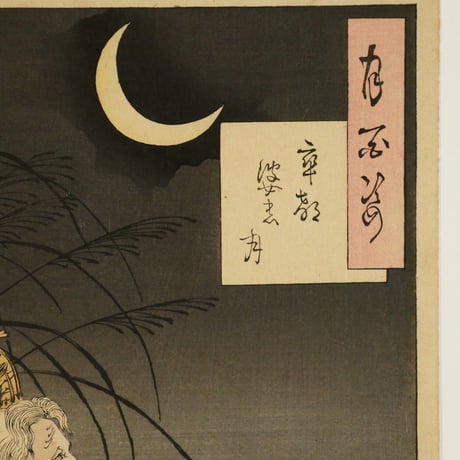 月百姿
卒都
婆の
月